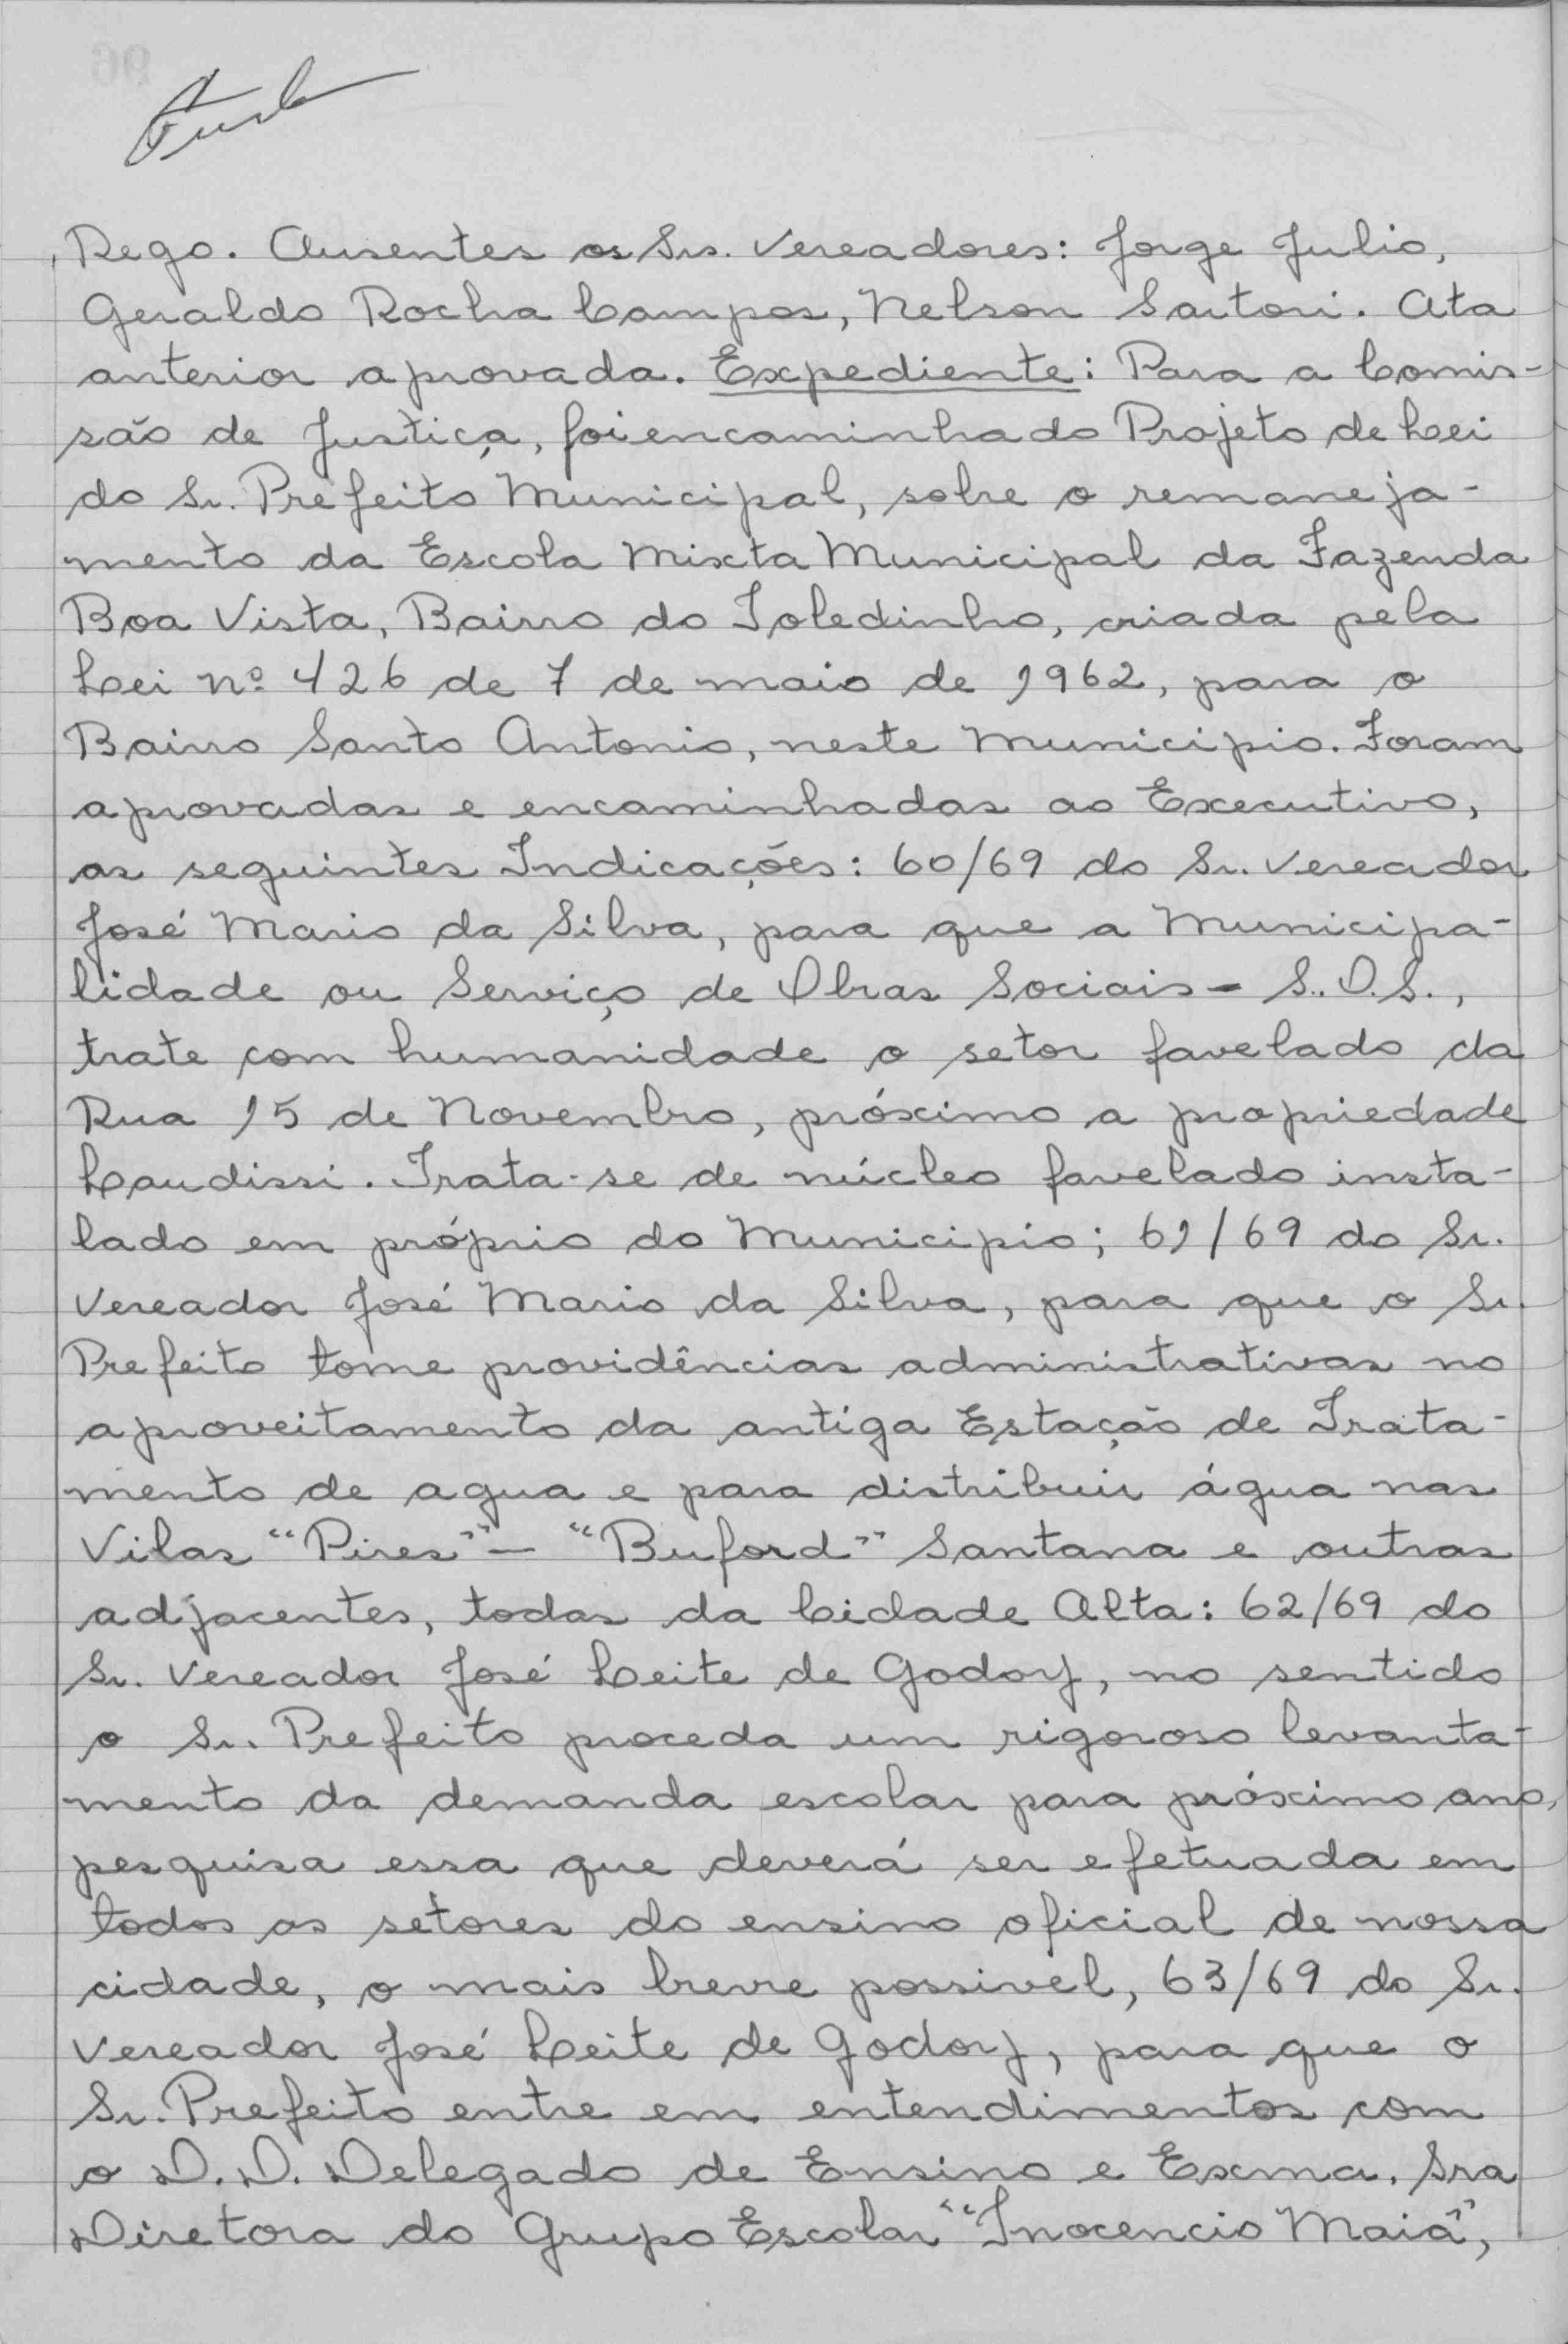 Rego. Ausentes os Srs. Vereadores: Jorge Julio,
Geraldo Rocha Campos, Nelson Sartori. Ata
anterior aprovada. Expediente: Para a Comis-
são de Justiça, foi encaminhado Projeto de Lei
do Sr. Prefeito Municipal, sobre o remaneja-
mento da Escola Mixta Municipal da Fazenda
Boa Vista, Bairro do Toledinho, criada pela
Lei nº 426 de 7 de maio de 1962, para o
Bairro Santo Antonio, neste Municipio. Foram
aprovadas e encaminhadas ao Executivo,
as seguintes Indicações: 60/69 do Sr. Vereador
José Mario da Silva, para que a Municipa-
lidade ou Serviço de Obras Sociais - S.O.S.,
trate com humanidade o setor favelado da
Rua 15 de Novembro, próximo a propriedade
Laudissi. Trata-se de núcleo favelado insta-
lado em próprio do Municipio; 61/69 do Sr.
Vereador José Mario da Silva, para que o Sr.
Prefeito tome providências administrativas no
aproveitamento da antiga Estação de Trata-
mento de agua e para distribuir água nas
Vilas "Pires" - "Buford" Santana e outras
adjacentes, todas da Cidade Alta: 62/69 do
Sr. Vereador José Leite de Godoy, no sentido
o Sr. Prefeito proceda um rigoroso levanta-
mento da demanda escolar para próximo ano,
pesquisa essa que deverá ser efetuada em
todos os setores do ensino oficial de nossa
cidade, o mais breve possivel, 63/69 do Sr.
Vereador José Leite de Godoy, para que o
Sr. Prefeito entre em entendimentos com
o D.D. Delegado de Ensino e Exma. Sra
Diretora do Grupo Escolar "Inocencio Maia",